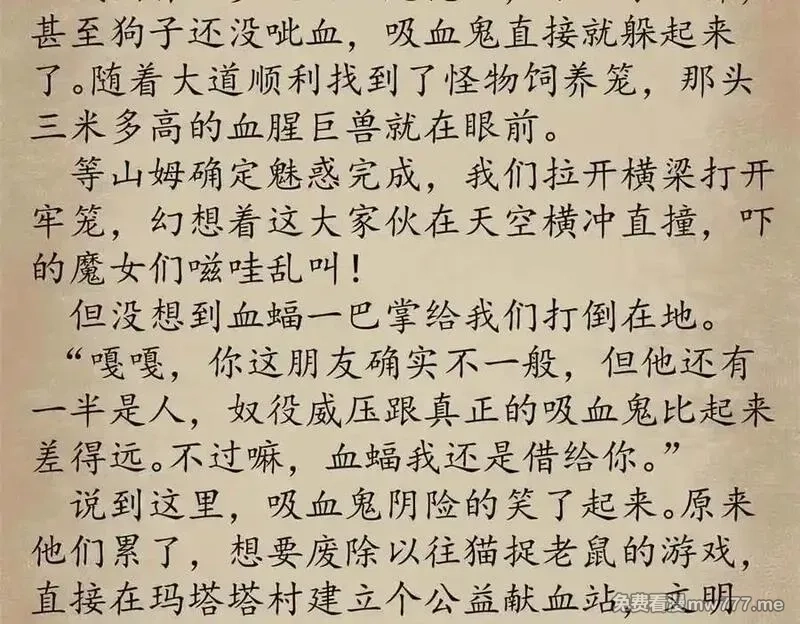 甚至狗子还没呲血，吸血鬼直接就躲起来
了。随着大道顺利找到了怪物饲养笼，那头
三米多高的血腥巨兽就在眼前。
等山姆确定魅惑完成，我们拉开横梁打开
牢笼，幻想着这大家伙在天空横冲直撞，吓
的魔女们嗞哇乱叫！
但没想到血蝠一巴掌给我们打倒在地。
“嘎嘎，你这朋友确实不一般，但他还有
一半是人，奴役威压跟真正的吸血鬼比起来
差得远。不过嘛，血蝠我还是借给你。”
说到这里，吸血鬼阴险的笑了起来。原来
他们累了，想要废除以往猫捉老鼠的游戏，
直接在玛塔塔村建立个公益献血站，文明
免费看漫mw777.me